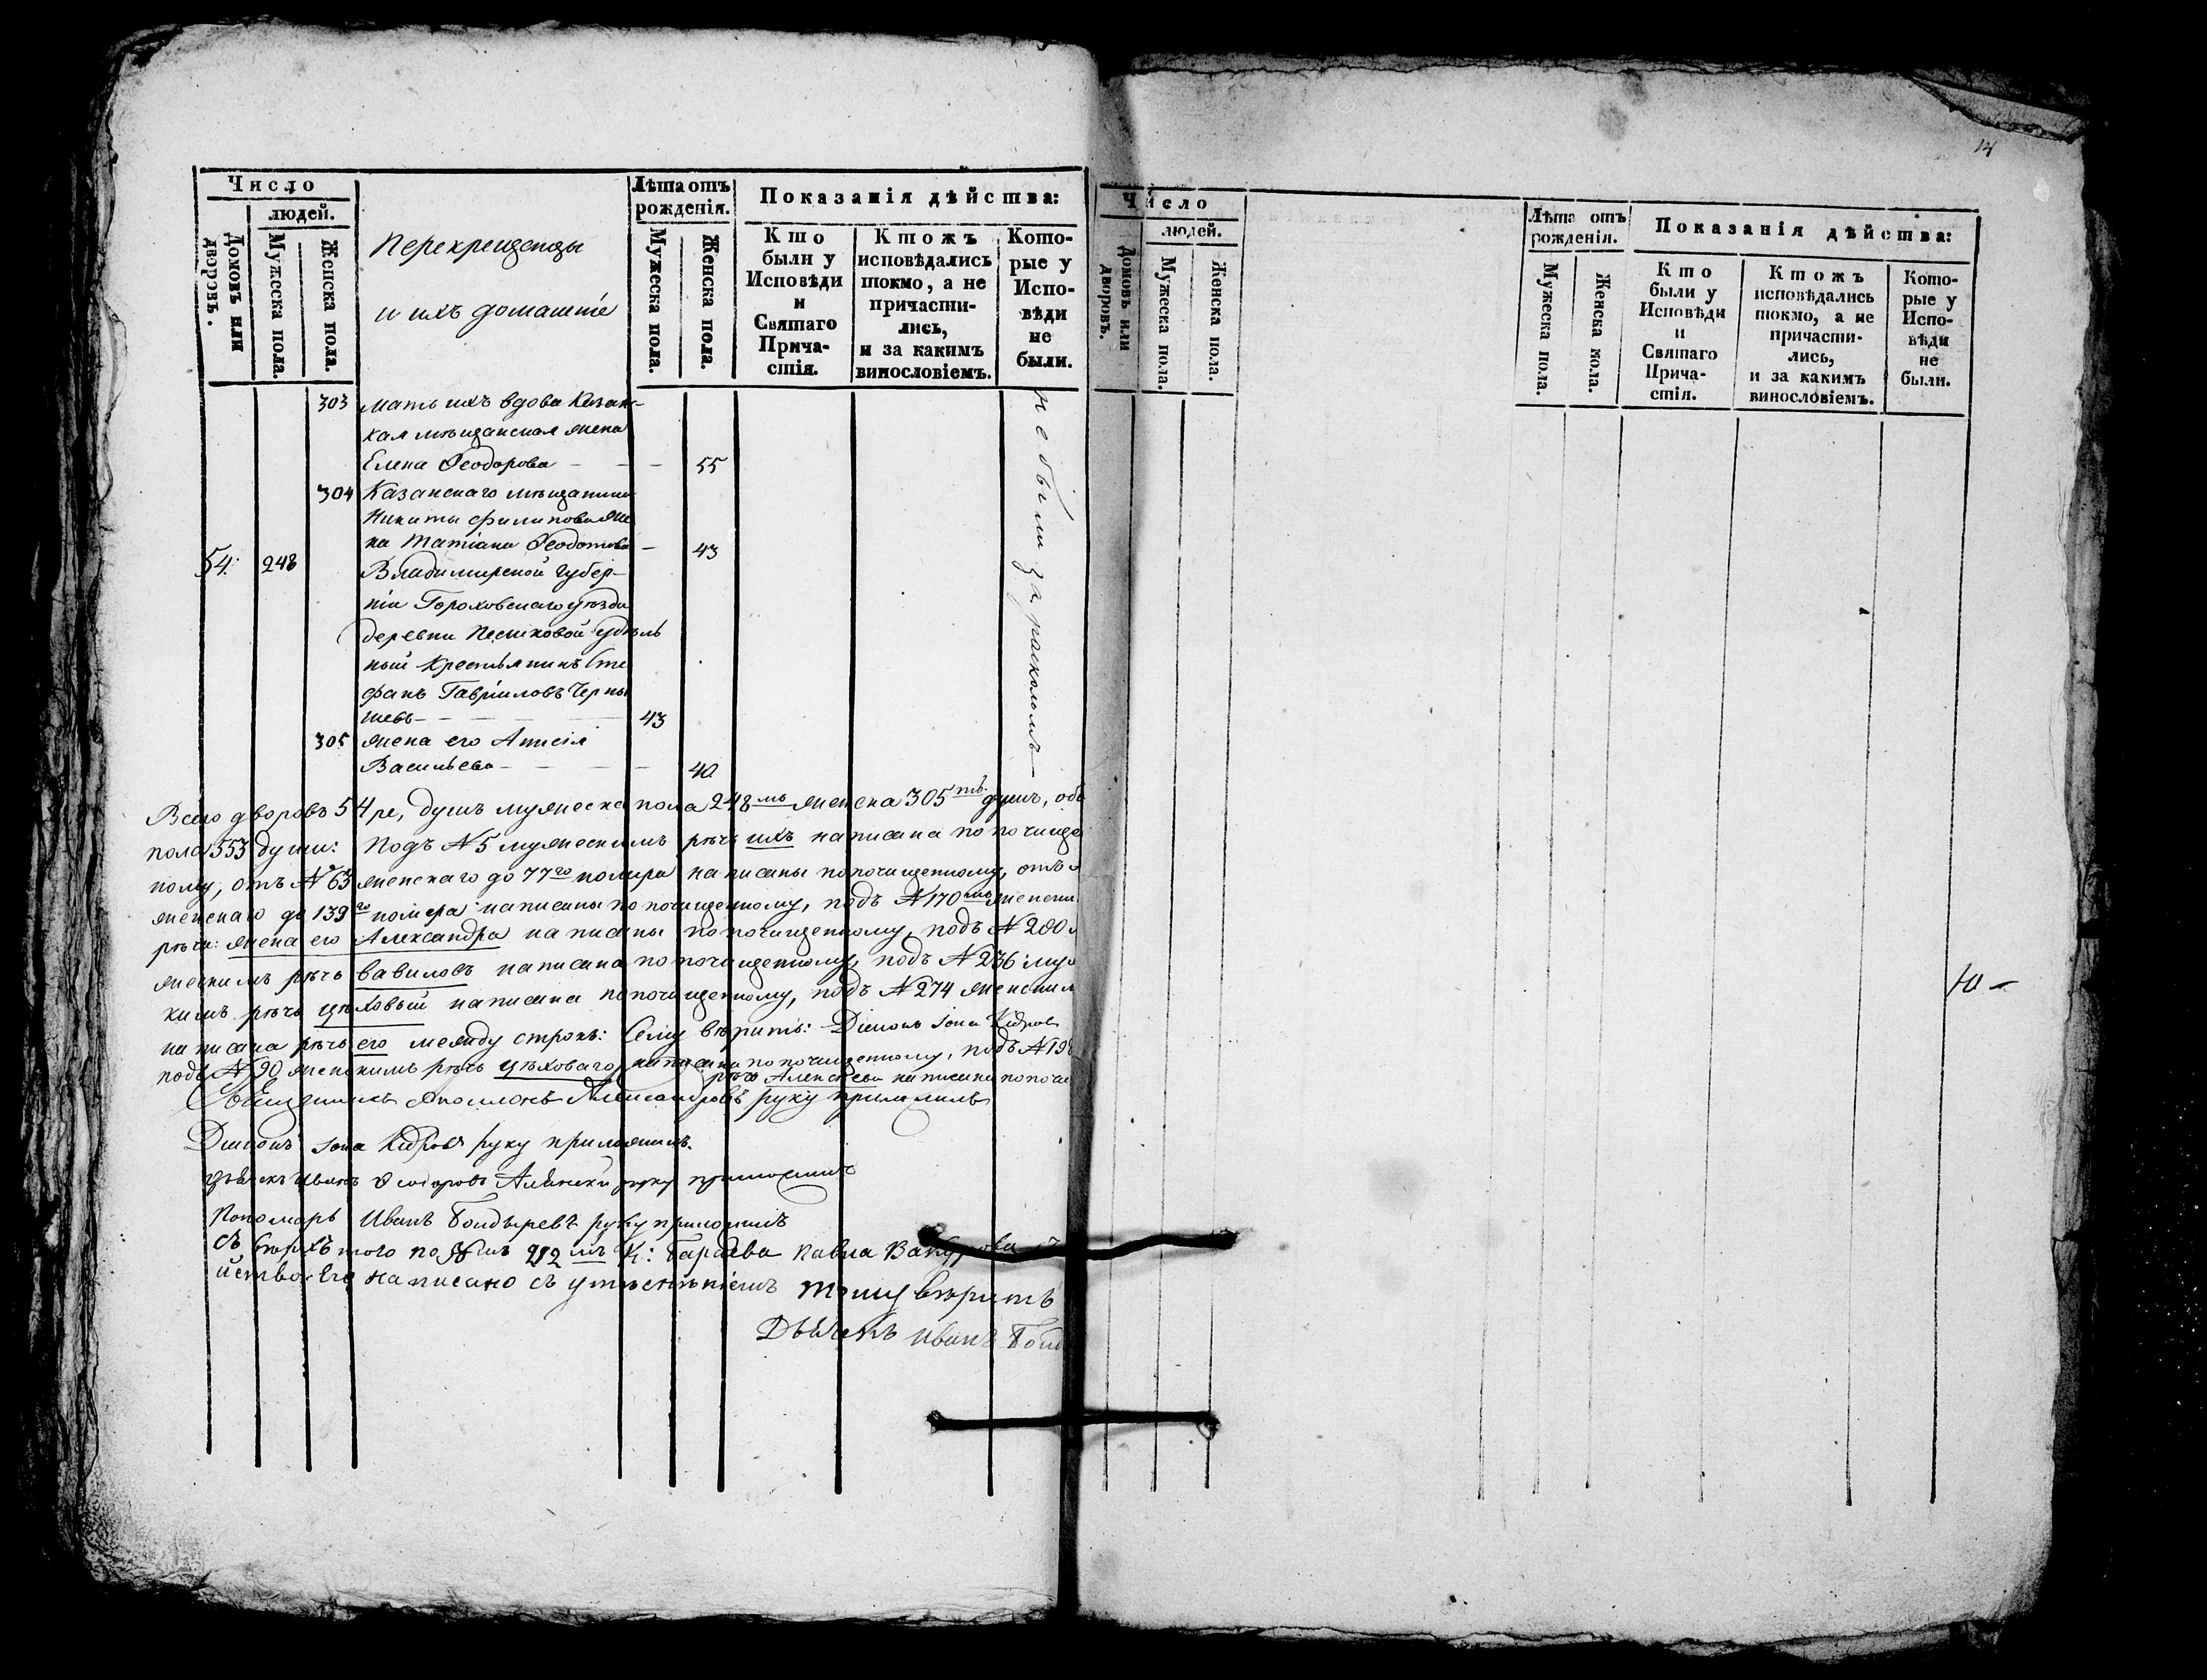 Число
людей.
Домовъ или дворовъ.
Мужеска пола.
Женска пола.
Перекрещенцы
и ихъ домашніе
Лѣта отъ рожденія.
Мужеска пола.
Женска пола.
Показанія дѣйства:
Кто были у Исповѣди и Святаго Прича-стія.
Ктожъ исповѣдались токмо, а не причасти-лись, и за какимъ винословіемъ.
Кото-рые у Испо-вѣди не были.
303 мать ихъ вдова Казан-
кая мѣщанская жена
Елена Ѳеодорова — 55
304 Казанскаго мѣщанина
Никиты Филипова же
на Татіана Ѳеодотова — 43
54. 248 Владимирской губер-
ніи Гороховскаго уѣзда
деревни Песиковой удѣль
ный крестьянинъ Сте
фанъ Гавріиловъ Черны
шевъ — 43
305 жена его Анисія
Васильева — 40
не были за расколомъ
Всего дворовъ 54ре, душъ мужеска пола 248мь женска 305ть душъ, обо
пола 553 души: Подъ №5 мужескимъ рѣчь ихъ написана по почище
ному, отъ №63 женскаго до 77го номера написаны по почищенному, отъ
женскаго до 139го номера написаны по почищенному, подъ №170мъ женски
рѣчи: жена его Александра написаны по почищенному, подъ №200
жескимъ рѣчь вавиловъ написана по почищенному, подъ №236 му
кимъ рѣчь цѣховый написана по почищенному, подъ №274 женским
написана рѣчь его между строкъ: Сему вѣрить: Діаконъ Іона Кедровъ
подъ №90 женскимъ рѣчь цѣховаго написана по почищенному, подъ №198
рѣчь Алексѣева написана по почи
Священникъ Аполлонъ Александровъ руку приложилъ
Діаконъ Іона Кедровъ руку приложилъ.
Дьячекъ Иванъ Ѳеодоровъ руку приложилъ
Пономарь Иванъ Болдыревъ руку приложилъ
Съ верхъ того по №мъ 212мъ К: Павла
написано съ тому вѣрить
Дьячекъ Иванъ Болд
14
Число
людей.
Домовъ или дворовъ.
Мужеска пола.
Женска пола.
Лѣта отъ рожденія.
Мужеска пола.
Женска пола.
Показанія дѣйства:
Кто были у Исповѣди и Святаго Прича-стія.
Ктожъ исповѣдались токмо, а не причасти-лись, и за какимъ винословіемъ.
Кото-рые у Испо-вѣди не были.
Ю —